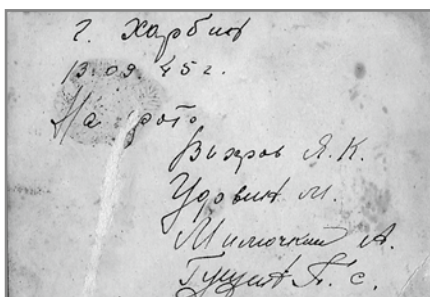 г. Харбин
13.09.45 г.
На фото
Вихров Я. К.
Удовин М.
Милючкин А.
Гущин П. С.